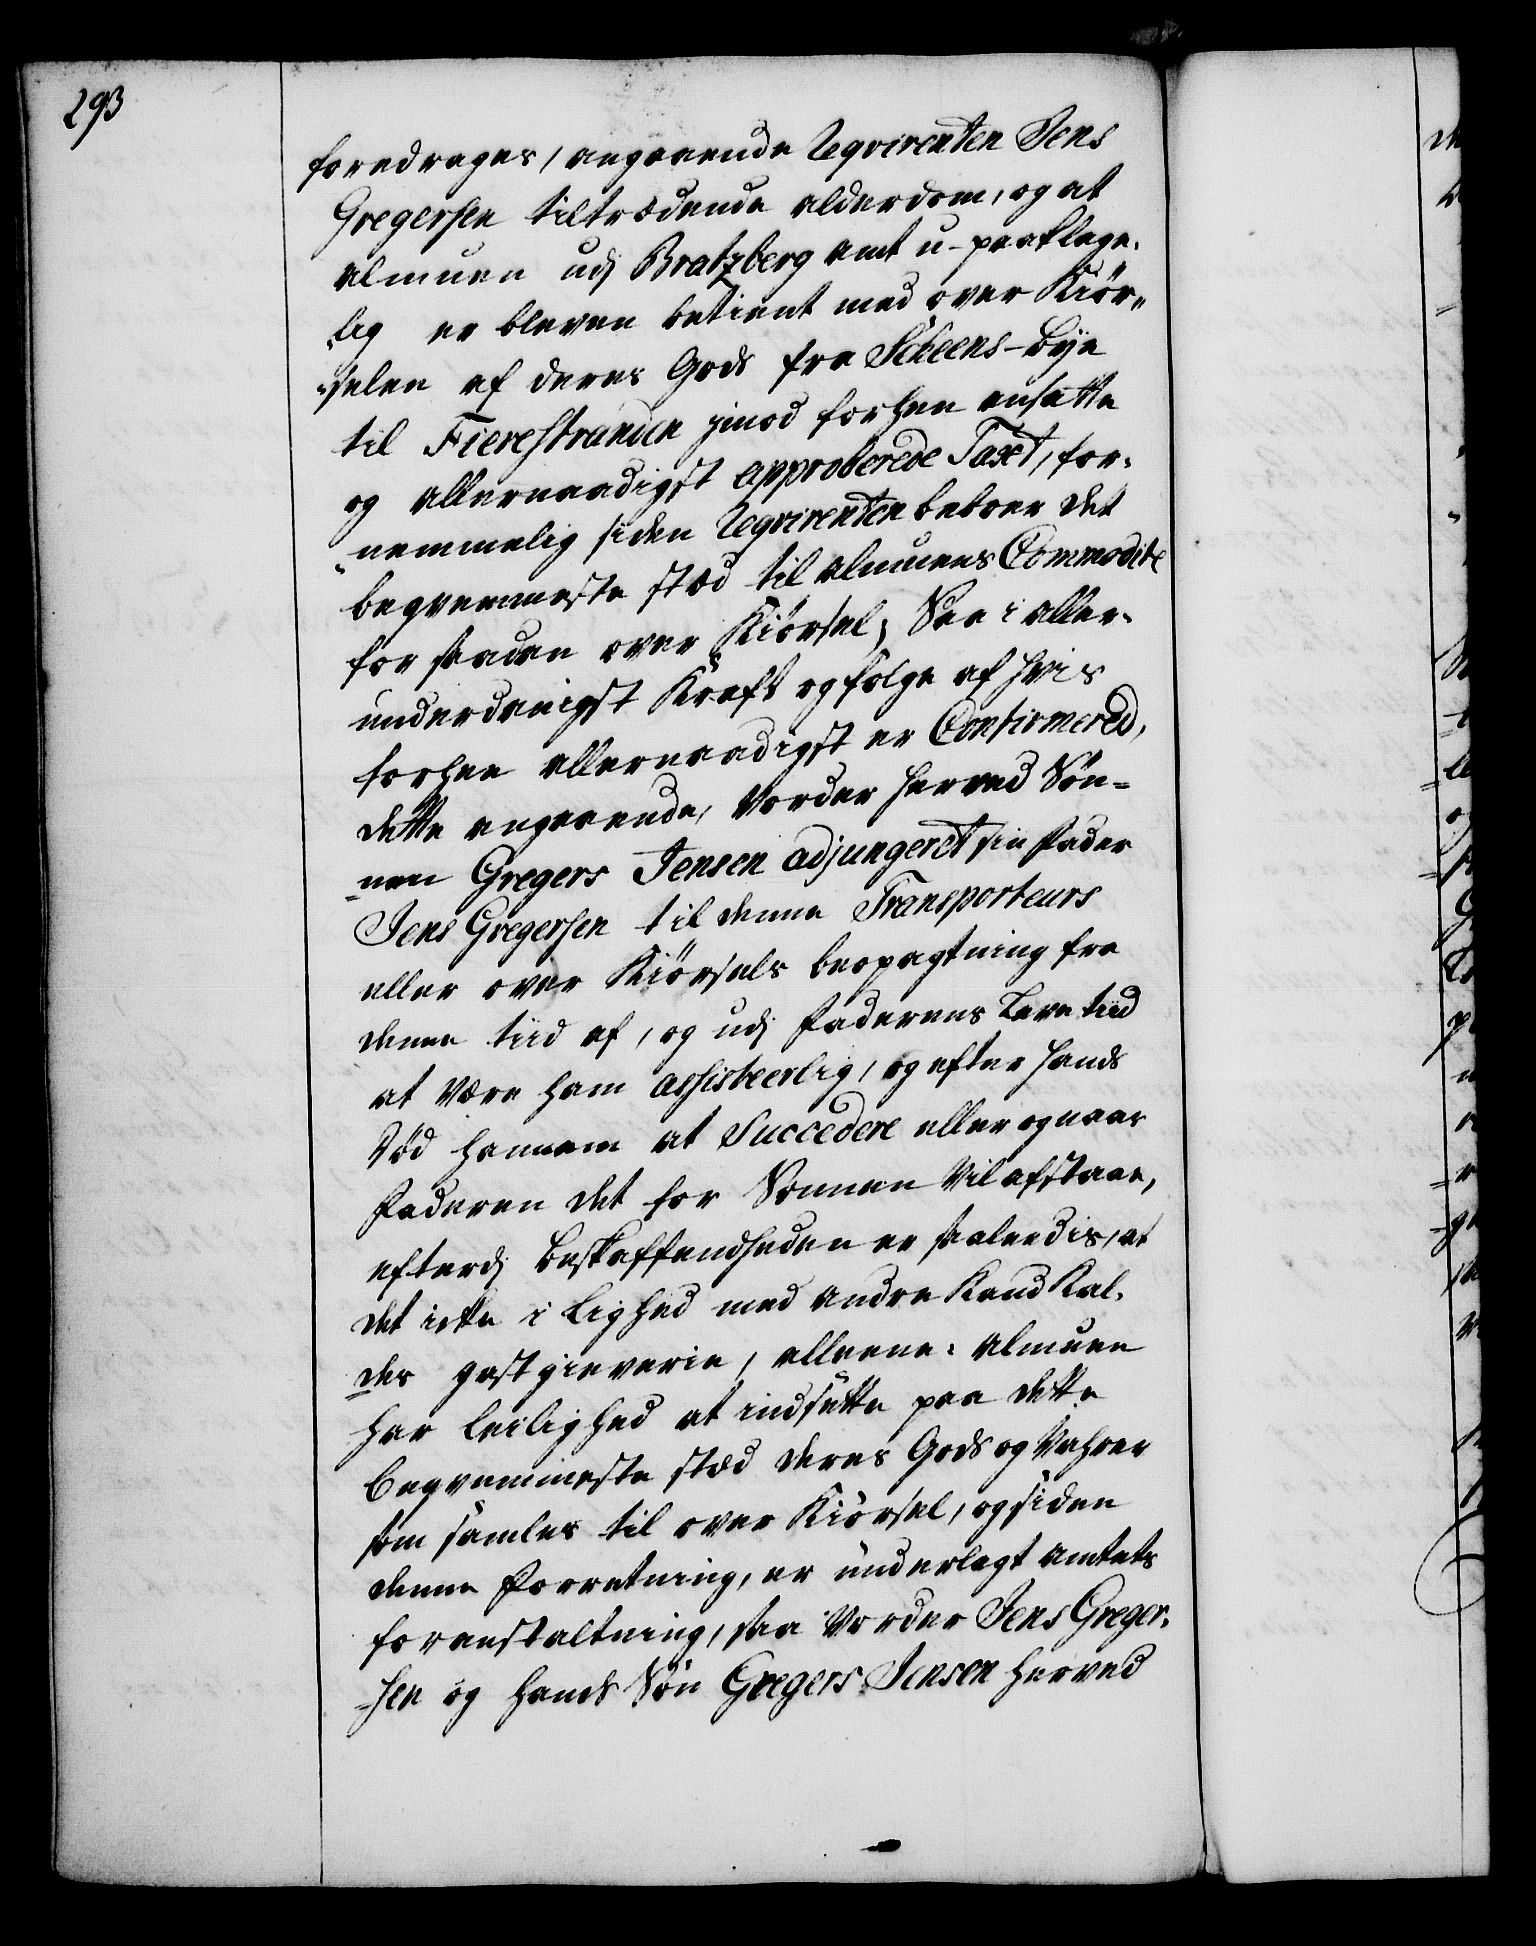 293
foredrages, angaaende Reqvirenten Jens
Gregersen tiltrædende alderdom, og at
almuen udj Bratzberg amt u-paaklage,
„lig er bleven betient med over Kiör„
„selen af deres Gods fra Scheens-Bÿe
til Fierestranden jmod forhen ansatte
og allernaadigst approberede Taxt, for„
„nemmelig siden Reqvirenten beboer det
beqvemmeste stæd til almuens Commodite
for saadan over Kiörsel; Saa i aller„
underdanigst Kraft og følge af hvis
forhen allernaadigst er Confirmered,
dette angaaende, Vorder herved Sön=
=nen Gregers Jensen adjungeret sin Fader
Jens Gregersen til denne Transporteurs
eller over Kiörsels beopagtning fra
denne tiid af, og udj Faderens Leve tiid
at være ham assisteerlig, og efter hands
Död hannem at Succedere eller og naar
Faderen det for Sönnen vil afstaae,
efterdj beskaffendheden er saaledis, at
det icke i Lighed med andre Kand Kal,
des gestgieverie, alleene almuen
har leilighed at indsætte paa dette
beqvemmeste stæd deres Gods og Vahrer
som samles til over Kiörsel, og siden
denne Forretning, er underlagt amtets
foranstaltning, saa Vorder Jens Greger„
=sen og hands Sön Gregers Jensen herved